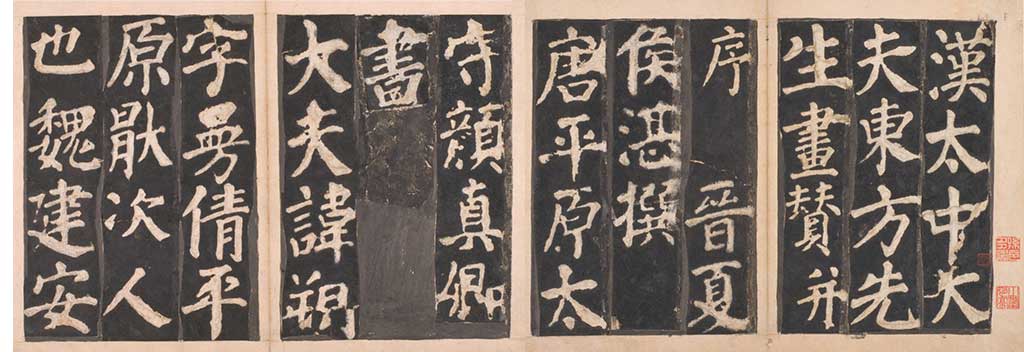 漢太中大
夫東方先
生畫贊并
序 晉夏
侯湛撰
唐平原太
守顏真卿
書
大夫諱朔
字曼倩平
原猒次人
也魏建安